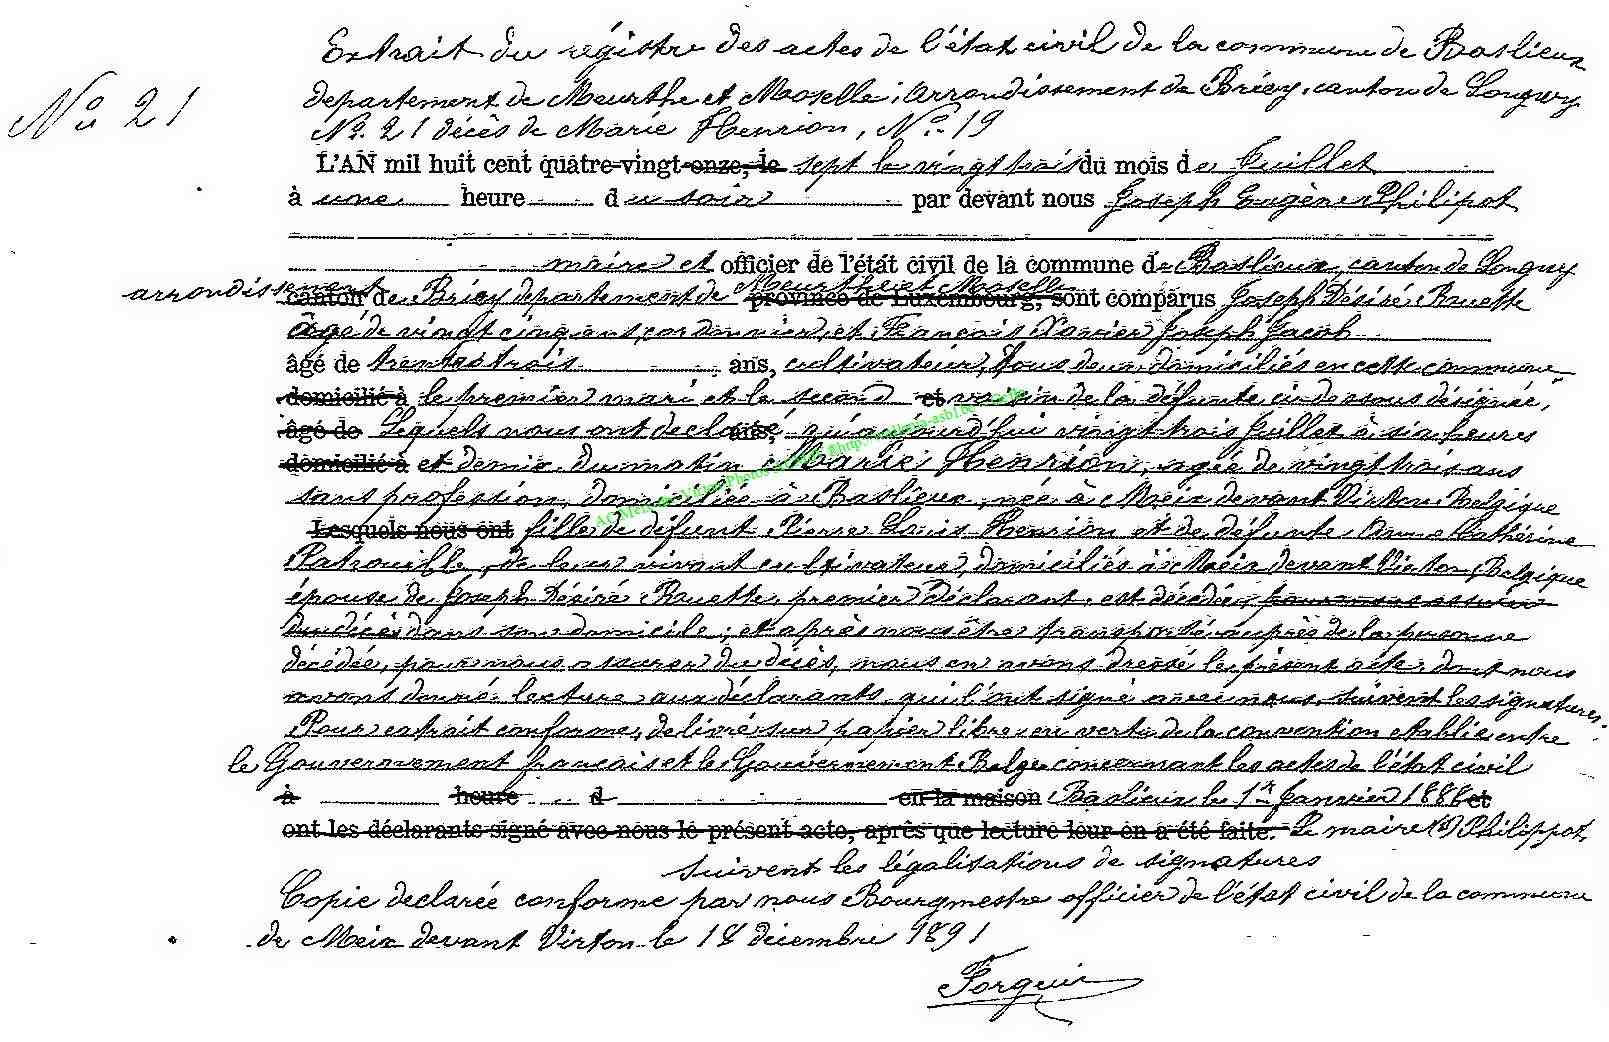 Extrait du régistre des actes de l'état civil de la commune de Baslieux
N° 21
departement de Meurthe et Moselle, arrondissement de Briey, canton de Longwy
N° 21 décès de Marie Henrion, N° 19
L'AN mil huit cent quatre-vingt-onze, le sept le vingt trois du mois de Juillet
à une heure du soir par devant nous Joseph Eugène Philipot
maire et officier de l'état civil de la commune de Baslieux, canton de Longwy
arrondissement canton de Briey departement de Meurthe et Moselle province de Luxembourg, sont comparus Joseph Désiré Rouette
âgé de vingt cinq ans, cordonnier, et François Xavier Joseph Jacob
âgé de trente trois ans, cultivateur, tous deux domiciliés en cette commune
domicilié à le premier mari et le second et voisin de la défunte ci dessous désignée,
âgé de Lesquels nous ont declaré ans, qu'aujourd'hui vingt trois Juillet à six heures
domicilié à et demie du matin Marie Henrion, agée de vingt trois ans
sans profession, domiciliée à Baslieux, née à Meix devant Virton Belgique
Lesquels nous ont fille de défunt Pierre Louis Henrion et de défunte Anne Cathérine
Patrouille, de leur vivant cultivateur, domiciliés à Meix devant Virton, Belgique
épouse de Joseph Désiré Rouette, premier déclarant, est décédée, pour nous assurer
du décès dans son domicile; et après nous être transporté auprès de la personne
décédée, pour nous assurer du décès, nous en avons dressé le présent acte, dont nous
avons donné lecture aux déclarants qui l'ont signé avec nous, suivent les signatures.
Pour extrait conforme, délivré sur papier libre en vertu de la convention etablie entre
le Gouvernement français et le Gouvernement Belge concernant les actes de l'état civil
à heure d en la maison Baslieux le 1er Janvier 1888 et
ont les déclarants signé avec nous le présent acte, après que lecture leur en a été faite. Le maire (s) Philippot
suivent les légalisations de signatures
Copie declarée conforme par nous Bourgmestre officier de l'état civil de la commune
de Meix devant Virton le 18 décembre 1891